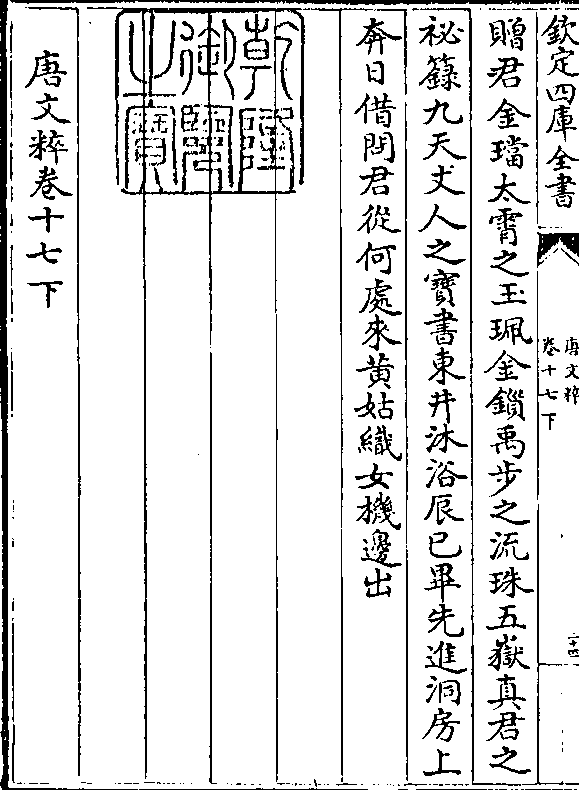 欽定四庫全書
唐文粹
卷十七下
二十四
贈君金璫太霄之玉珮金鎻禹步之流珠五嶽真君之
祕籙九天丈人之寶書東井沐浴辰巳畢先進洞房上
奔日借問君從何處來黄姑織女機邊出
乾隆
御覽
之寶
唐文粹卷十七下